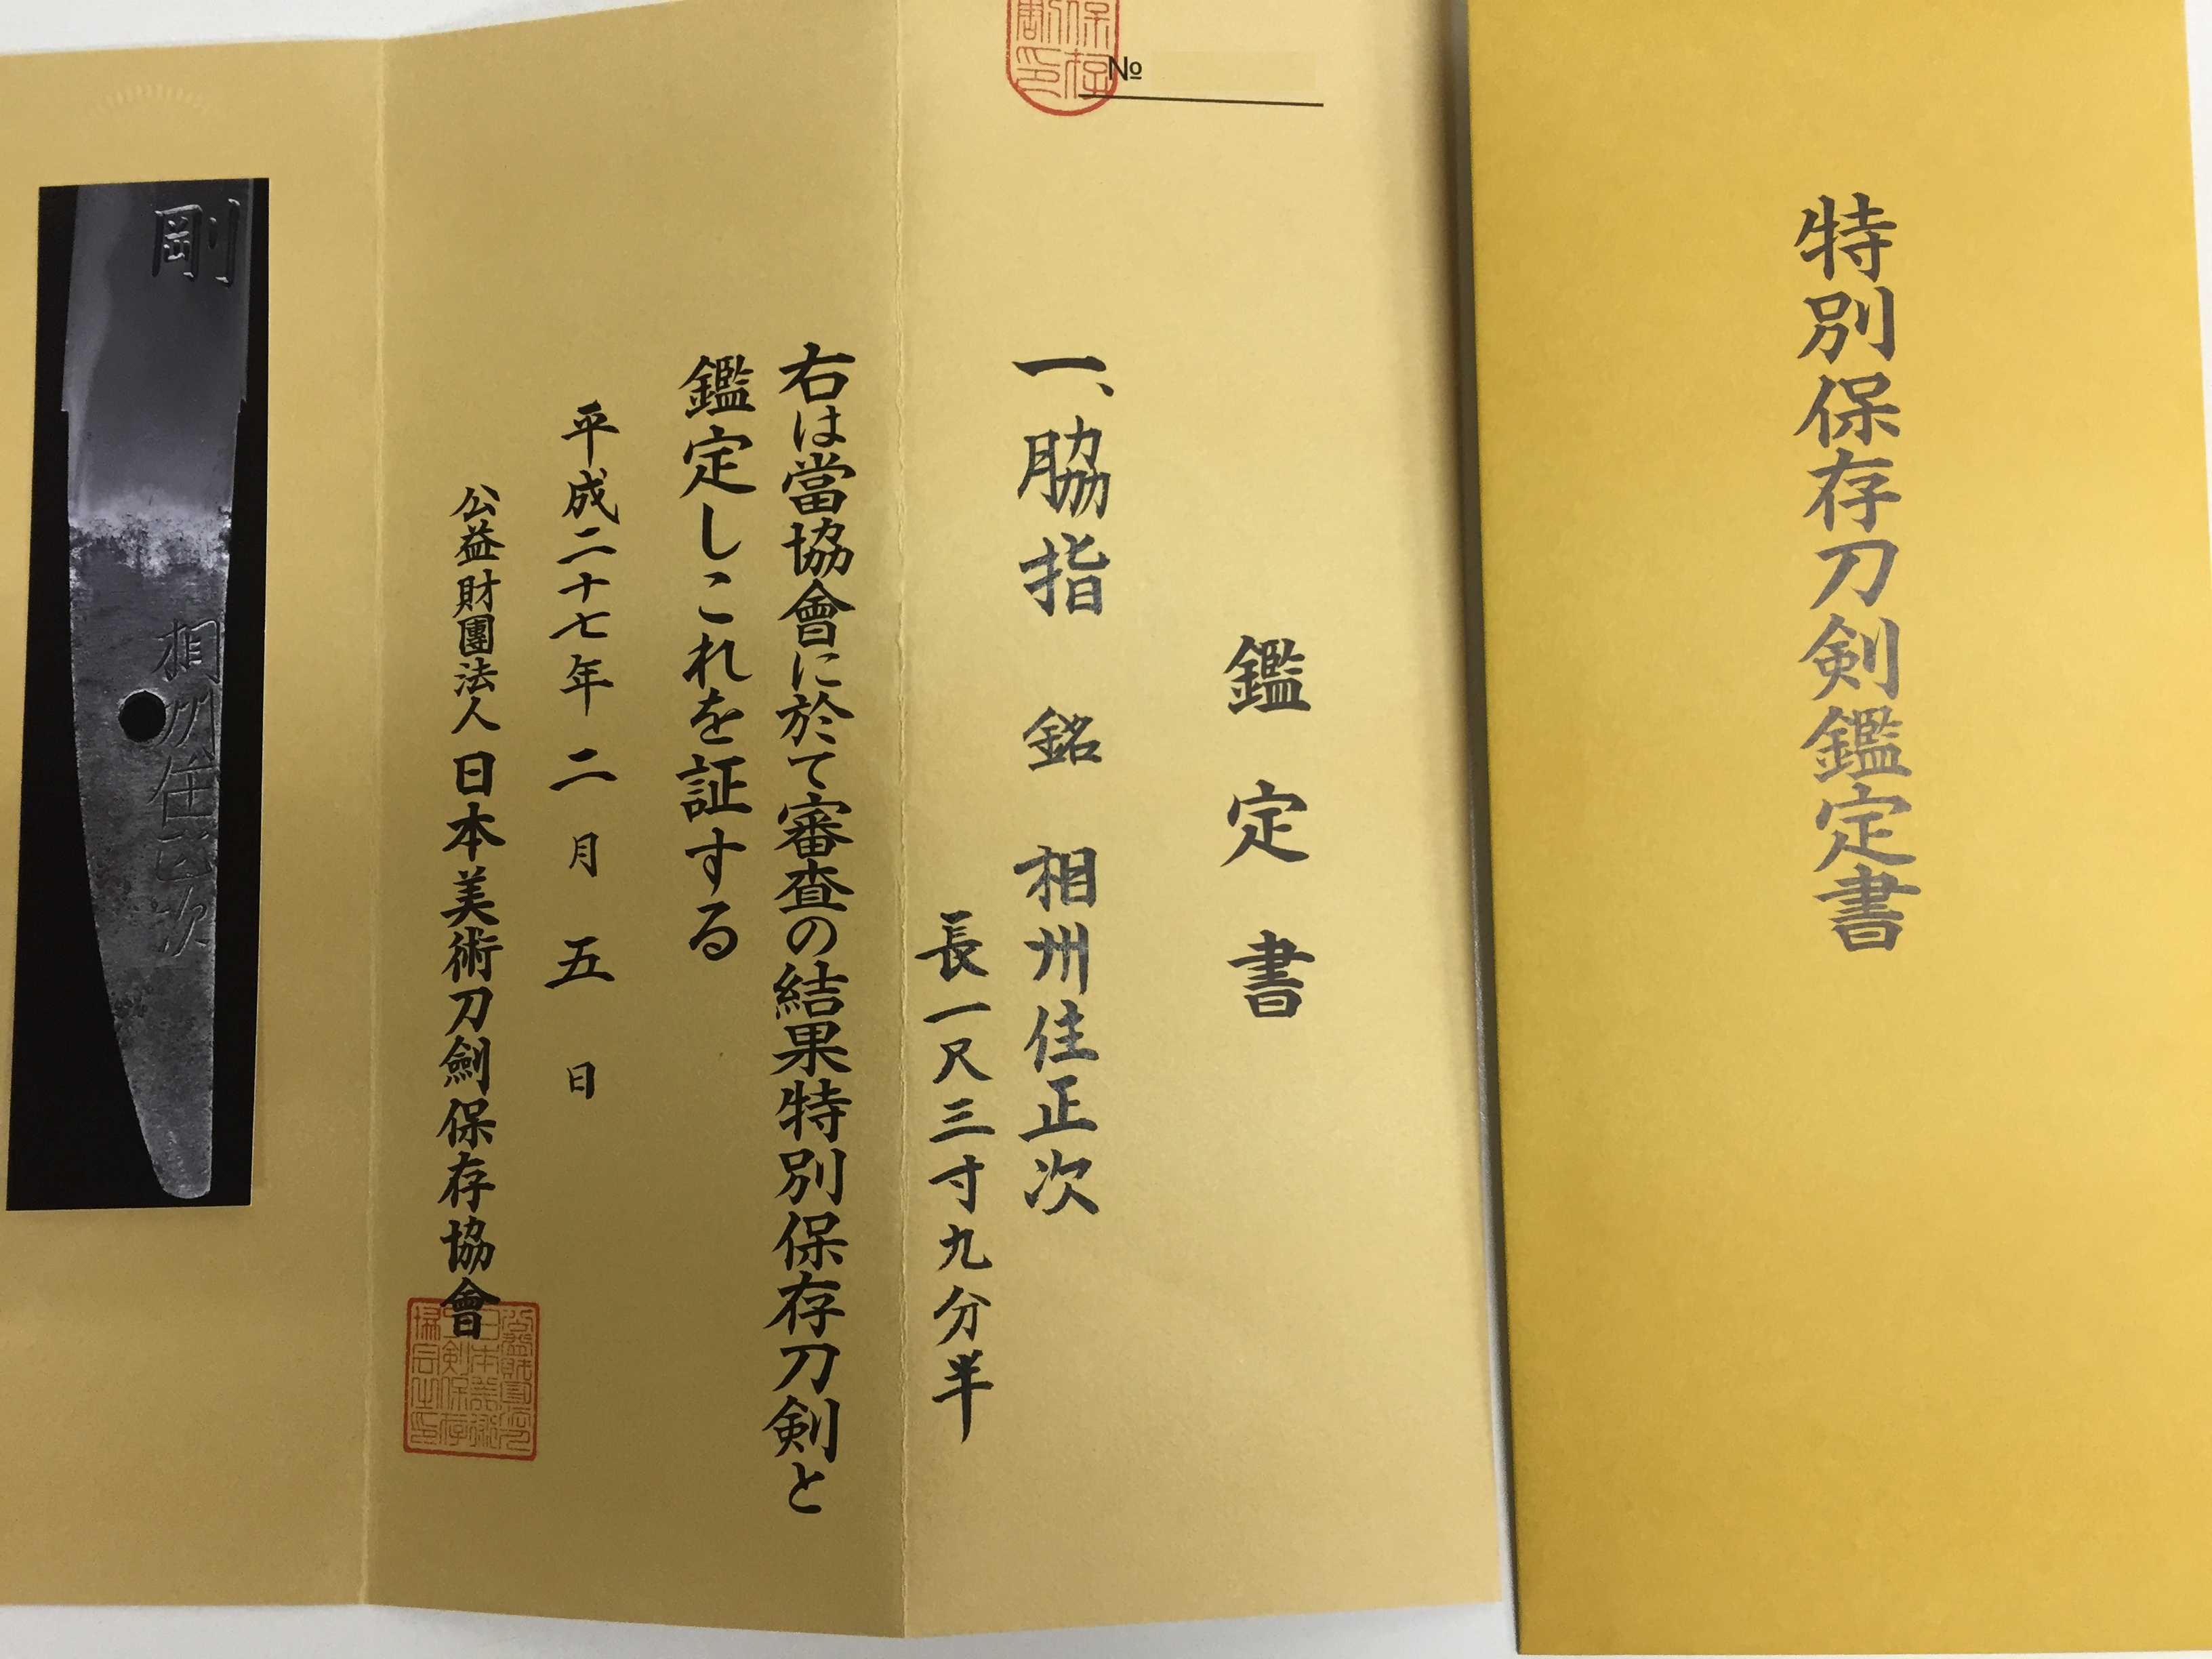 特別保存刀剣鑑定書
保存
印
№
鑑定書
一、脇指 銘 相州住正次
長一尺三寸九分半
右は當協會に於て審査の結果特別保存刀剣と
鑑定しこれを証する
平成二十七年二月五日
公益財團法人日本美術刀劍保存協會
剛
相州住正次